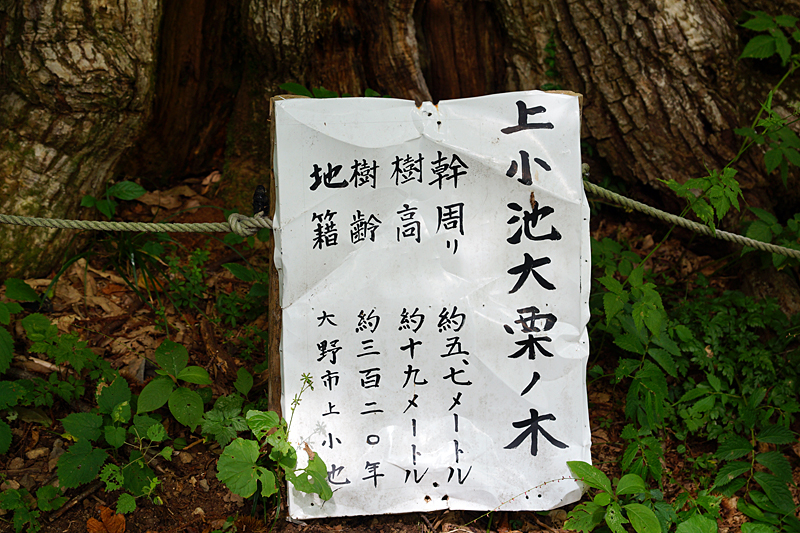 上小池大栗ノ木
幹周リ 約五、七メートル
樹高 約十九メートル
樹齢 約三百二〇年
地籍 大野市上小池